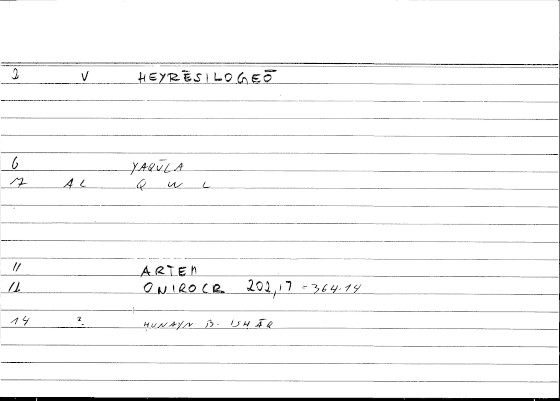 2 V HEYRĒSILOGEŌ
6 YAQŪLA
7 AL Q W L
11 ARTEM
12 ONIROCR 202,17 - 364.14
14 ? HUNAYN B. ISHĀQ